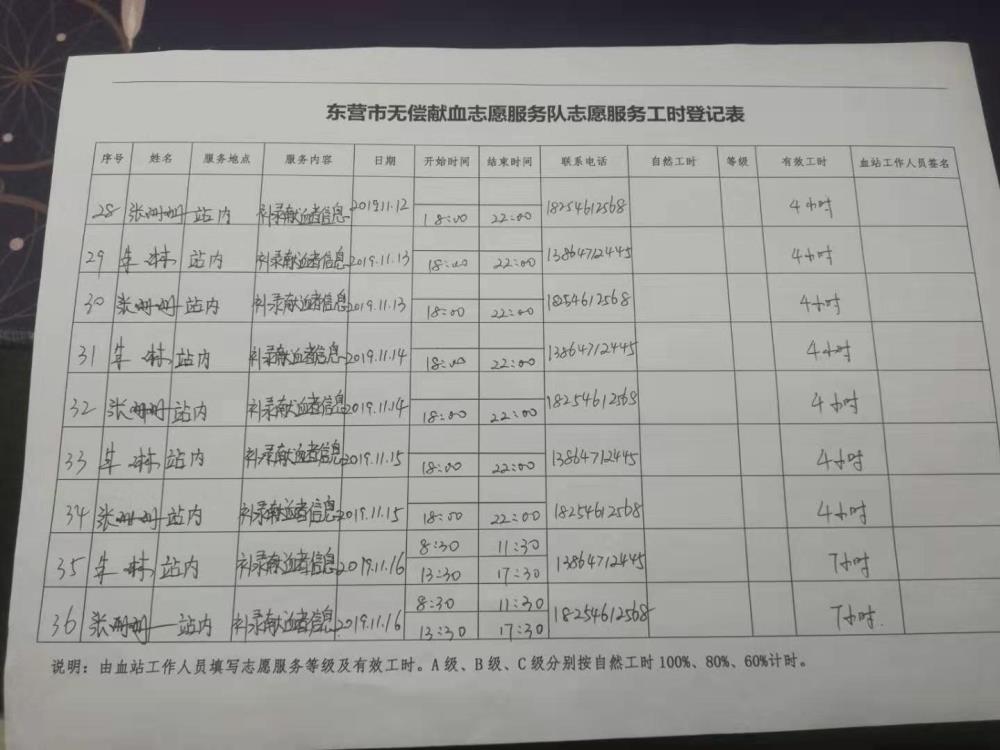 东营市无偿献血志愿服务队志愿服务工时登记表
序号 姓名 服务地点 服务内容 日期 开始时间 结束时间 联系电话 自然工时 等级 有效工时 血站工作人员签名
28 张姗姗 站内 补录献血者信息 2019.11.12 18:00 22:00 18254612568 4小时
29 车林 站内 补录献血者信息 2019.11.13 18:00 22:00 13864712445 4小时
30 张姗姗 站内 补录献血者信息 2019.11.13 18:00 22:00 18254612568 4小时
31 车林 站内 补录献血者信息 2019.11.14 18:00 22:00 13864712445 4小时
32 张姗姗 站内 补录献血者信息 2019.11.14 18:00 22:00 18254612568 4小时
33 车林 站内 补录献血者信息 2019.11.15 18:00 22:00 13864712445 4小时
34 张姗姗 站内 补录献血者信息 2019.11.15 18:00 22:00 18254612568 4小时
8:30 11:30
35 车林 站内 补录献血者信息 2019.11.16 13:30 17:30 13864712445 7小时
8:30 11:30
36 张姗姗 站内 补录献血者信息 2019.11.16 13:30 17:30 18254612568 7小时.
说明：由血站工作人员填写志愿服务等级及有效工时。A级、B级、C级分别按自然工时100%、80%、60%计时。